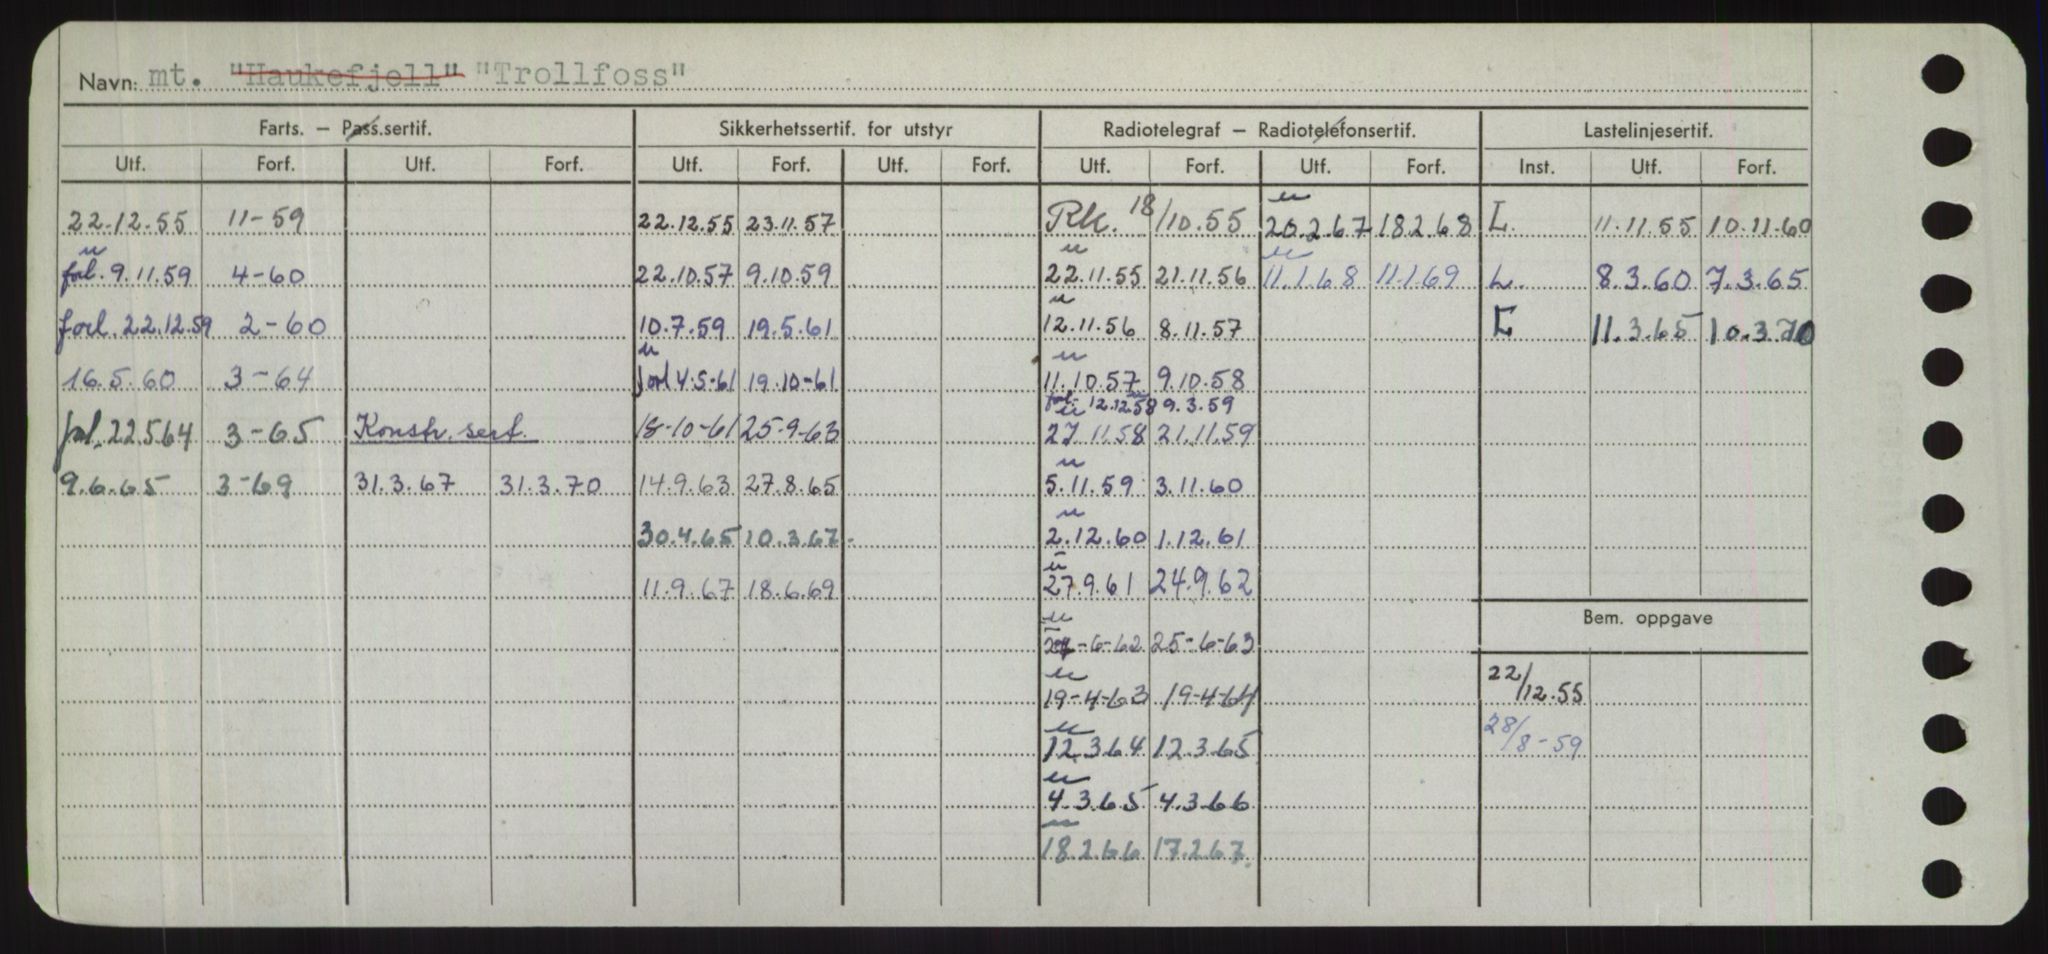 Navn: mt. "Haukefjell" "Trollfoss"
Farts. - Pass.sertif. Sikkerhetssertif. for utstyr Radiotelegraf - Radiotelefonsertif. Lastelinjesertif.
Utf. Forf. Utf. Forf. Utf. Forf. Utf. Forf. Utf. Forf. Utf. Forf. Inst. Utf. Forf.
22.12.55 11-59 22.12.55 23.11.57 Rk. 18/10.55 u 20.2.67 18.2.68 L. 11.11.55 10.11.60
u forl. 9.11.59 4-60 22.10.57 9.10.59 u 22.11.55 21.11.56 u 11.1.68 11.1.69 L. 8.3.60 7.3.65
forl. 22.12.59 2-60 10.7.59 19.5.61 u 12.11.56 8.11.57 L 11.3.65 10.3.70
16.5.60 3-64 u forl 4.5-61 19.10-61 u 11.10.57 9.10.58
forl. 12.12.58 9.3.59
forl. 22.5.64 3-65 Konstr. sert. 18-10-61 25-9-63 u 27.11.58 21.11.59
9.6.65 3-69 31.3.67 31.3.70 14.9.63 27.8.65 u 5.11.59 3.11.60
30.4.65 10.3.67. u 2.12.60 1.12.61
11.9.67 18.6.69 u 27.9.61 24.9.62
u -6-62 25-6-63
Bem. oppgave
u 19-4-63 19-4-64 22/12.55
u 12.3.64 12.3.65 28/8-59
u 4.3.65 4.3.66
u 18.2.66 17.2.67.